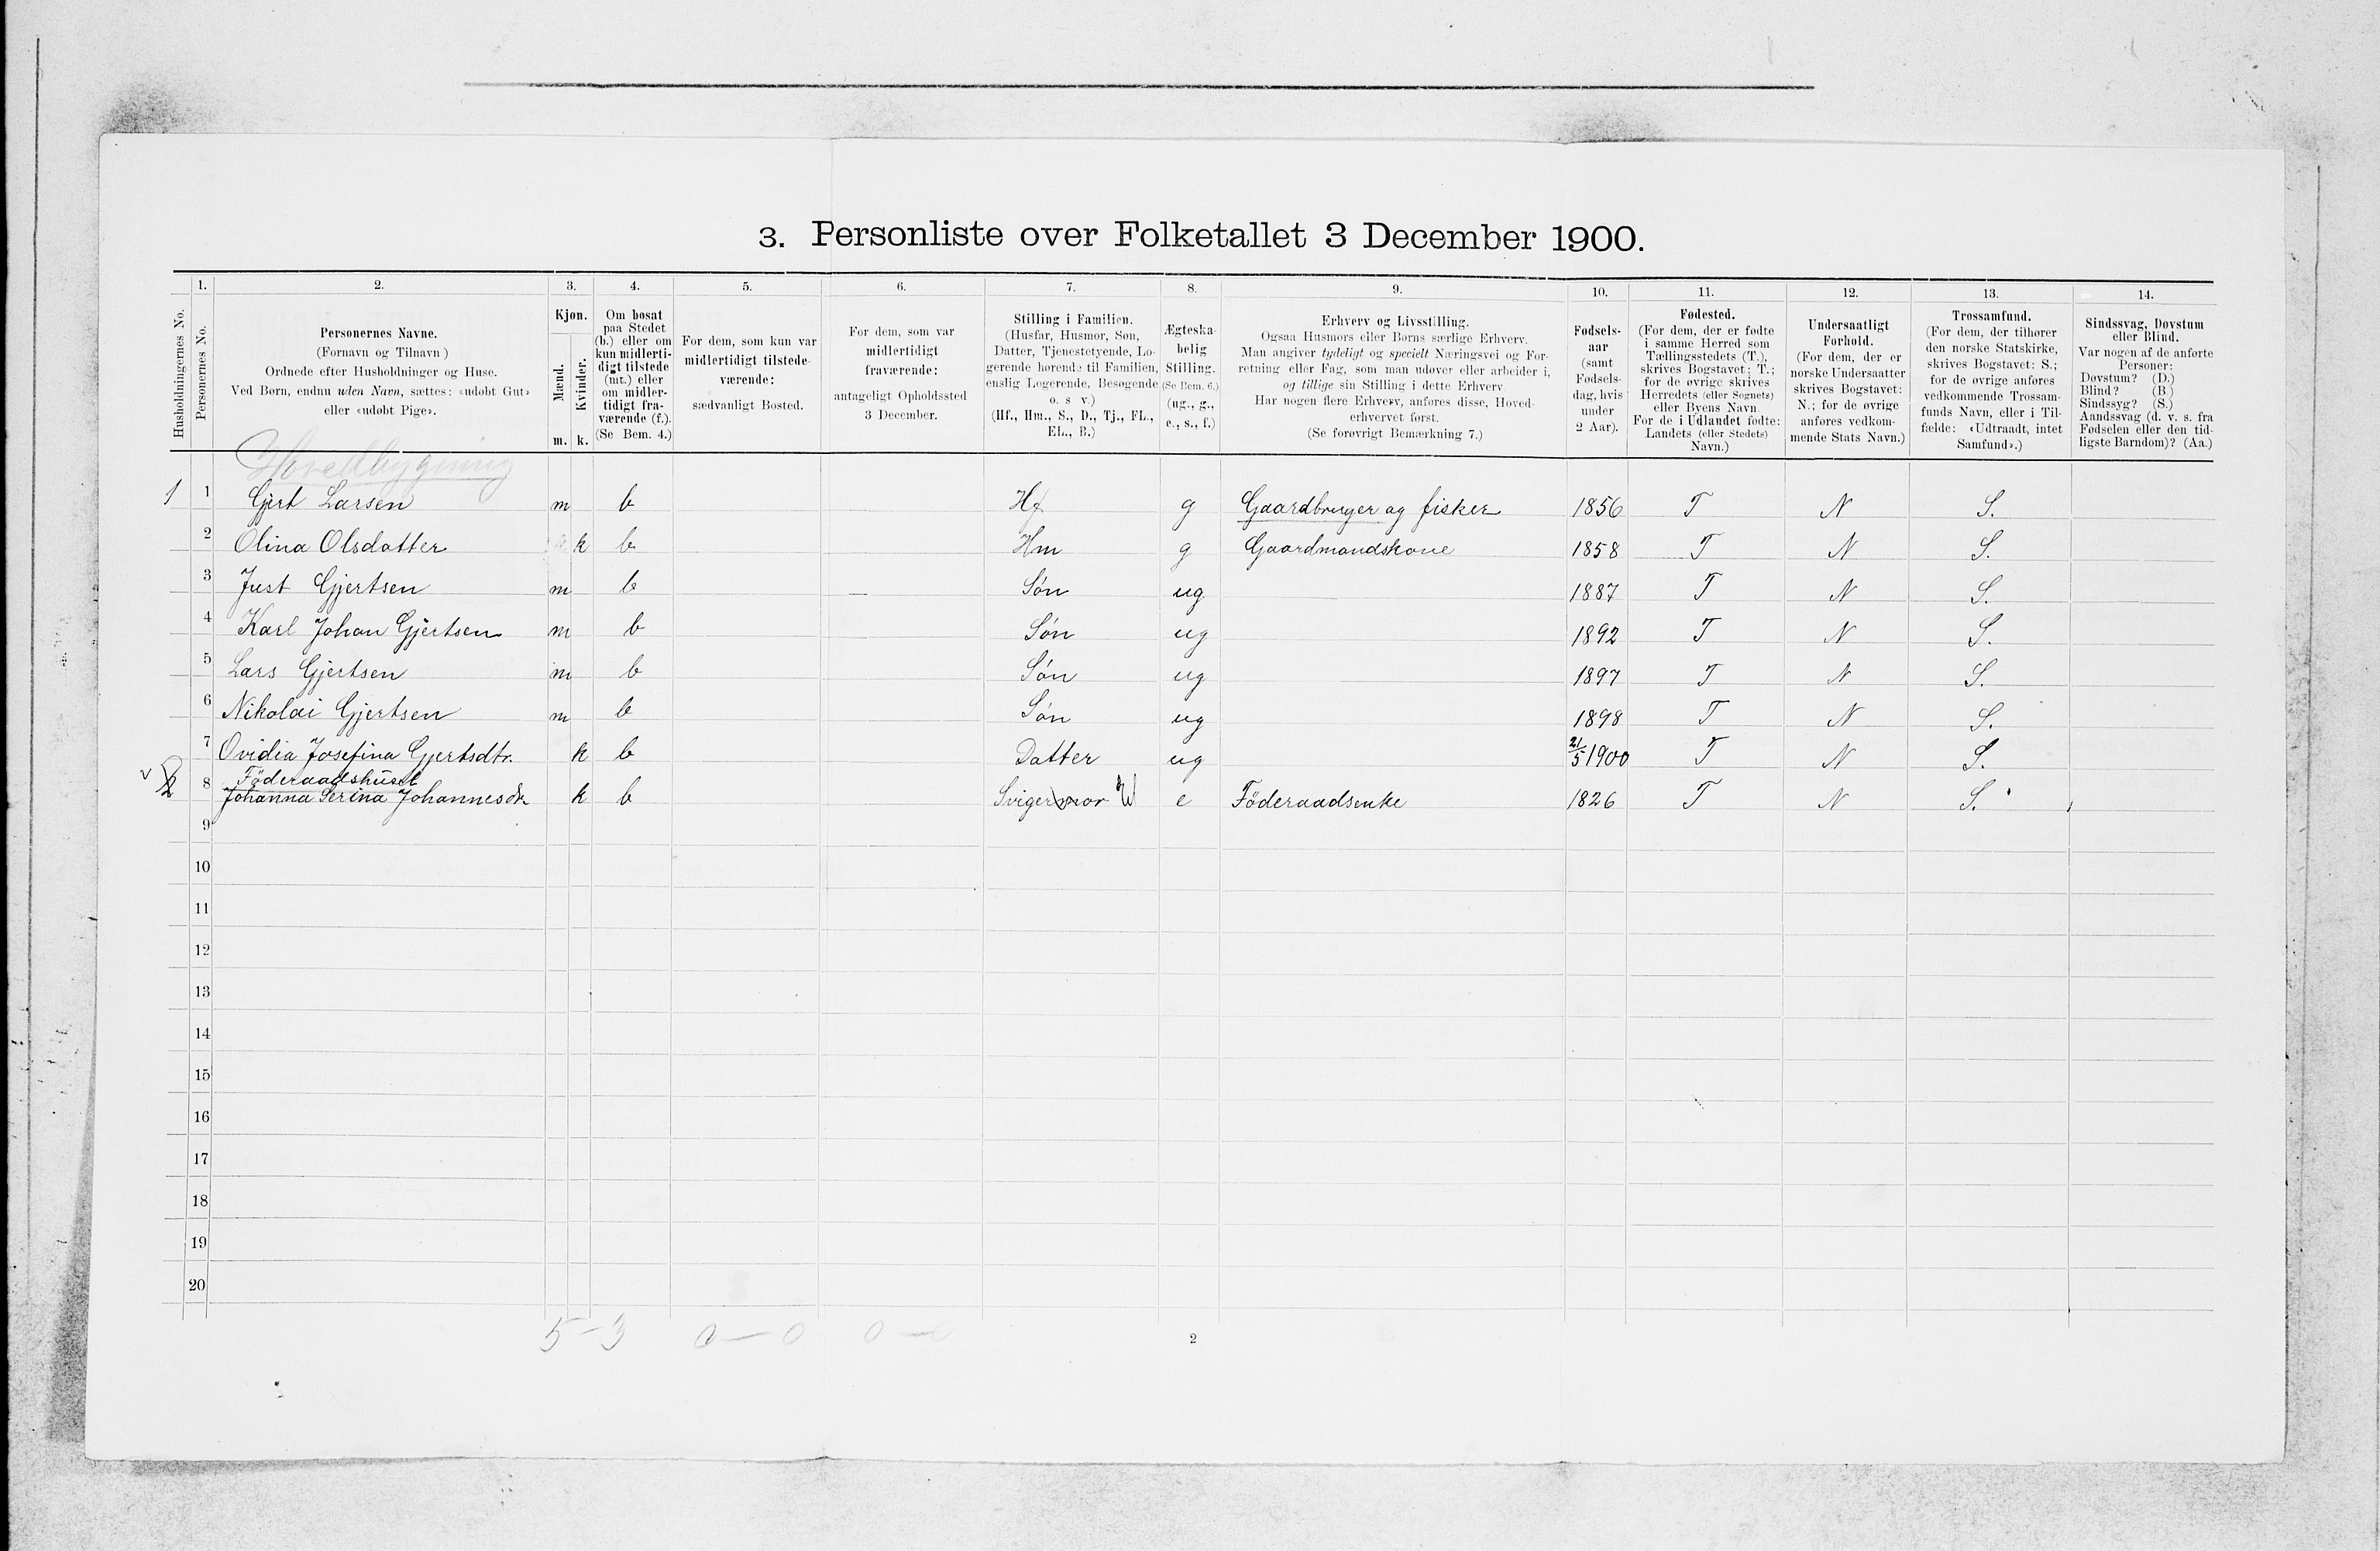 3. Personliste over Folketallet 3 December 1900.
1. 2. 3. 4. 5. 6. 7. 8. 9. 10. 11. 12. 13. 14.
Husholdningernes No.
Personernes No.
Personernes Navne.
(Fornavn og Tilnavn)
Ordnede efter Husholdninger og Huse.
Ved Børn, endnu uden Navn, sættes: «udøbt Gut»
eller «udøbt Pige».
Kjøn.
Mænd.
Kvinder.
m. k.
Om bosat
paa Stedet
(b.) eller om
kun midlerti-
digt tilstede
(mt.) eller
om midler-
tidigt fra-
værende (f.).
(Se Bem. 4.)
For dem, som kun var
midlertidigt tilstede-
værende:
sædvanligt Bosted.
For dem, som var
midlertidigt
fraværende:
antageligt Opholdssted
3 December.
Stilling i Familien.
(Husfar, Husmor, Søn,
Datter, Tjenestetyende, Lo-
gerende hørende til Familien,
enslig Logerende, Besøgende
o. s v.)
(Hf., Hm., S., D., Tj., FL.,
EL., B.)
Ægteska-
belig
Stilling.
(Se Bem. 6.)
(ug., g.,
e., s., f.)
Erhverv og Livsstilling.
Ogsaa Husmors eller Børns særlige Erhverv.
Man angiver tydeligt og specielt Næringsvei og For-
retning eller Fag, som man udøver eller arbeider i,
og tillige sin Stilling i dette Erhverv
Har nogen flere Erhverv, anføres disse, Hoved-
erhvervet først.
(Se forøvrigt Bemærkning 7.)
Fødsels-
aar
(samt
Fødsels-
dag, hvis
under
2 Aar).
Fødested.
(For dem, der er fødte
i samme Herred som
Tællingsstedets (T.),
skrives Bogstavet: T.;
for de øvrige skrives
Herredets (eller Sognets)
eller Byens Navn
For de i Udlandet fødte:
Landets (eller Stedets)
Navn.)
Undersaatligt
Forhold.
(For dem, der er
norske Undersaatter
skrives Bogstavet:
N.; for de øvrige
anføres vedkom-
mende Stats Navn.)
Trossamfund.
(For dem, der tilhører
den norske Statskirke,
skrives Bogstavet: S.;
for de øvrige anføres
vedkommende Trossam-
funds Navn, eller i Til-
fælde: «Udtraadt, intet
Samfund».)
Sindssvag, Døvstum
eller Blind.
Var nogen af de anførte
Personer:
Døvstum? (D.)
Blind? (B.)
Sindssyg? (S.)
Aandssvag (d. v. s. fra
Fødselen eller den tid-
ligste Barndom)? (Aa.)
Hovedbygning
1 1 Gjert Larsen m b Hf g Gaardbruger og fisker 1856 T N S.
2 Olina Olsdatter k b Hm g Gaardmandskone 1858 T N S.
3 Just Gjertsen m b — Søn ug 1887 T N S.
4 Karl Johan Gjertsen m b Søn ug 1892 T N S.
5 Lars Gjertsen m b Søn ug 1897 T N S.
6 Nikolai Gjertsen m b Søn ug 1898 T N S.
7 Ovidia Josefina Gjertsdtr. k b Datter ug 21/5 1900 T N S.
Föderaadshuset
v 2 8 Johanna Serina Johannesdtr k b Svigermor e Föderaadsenke 1826 T N S.
9
10
11
12
13
14
15
16
17
18
19
20
5 - 3 0 — 0 0 — 0
2